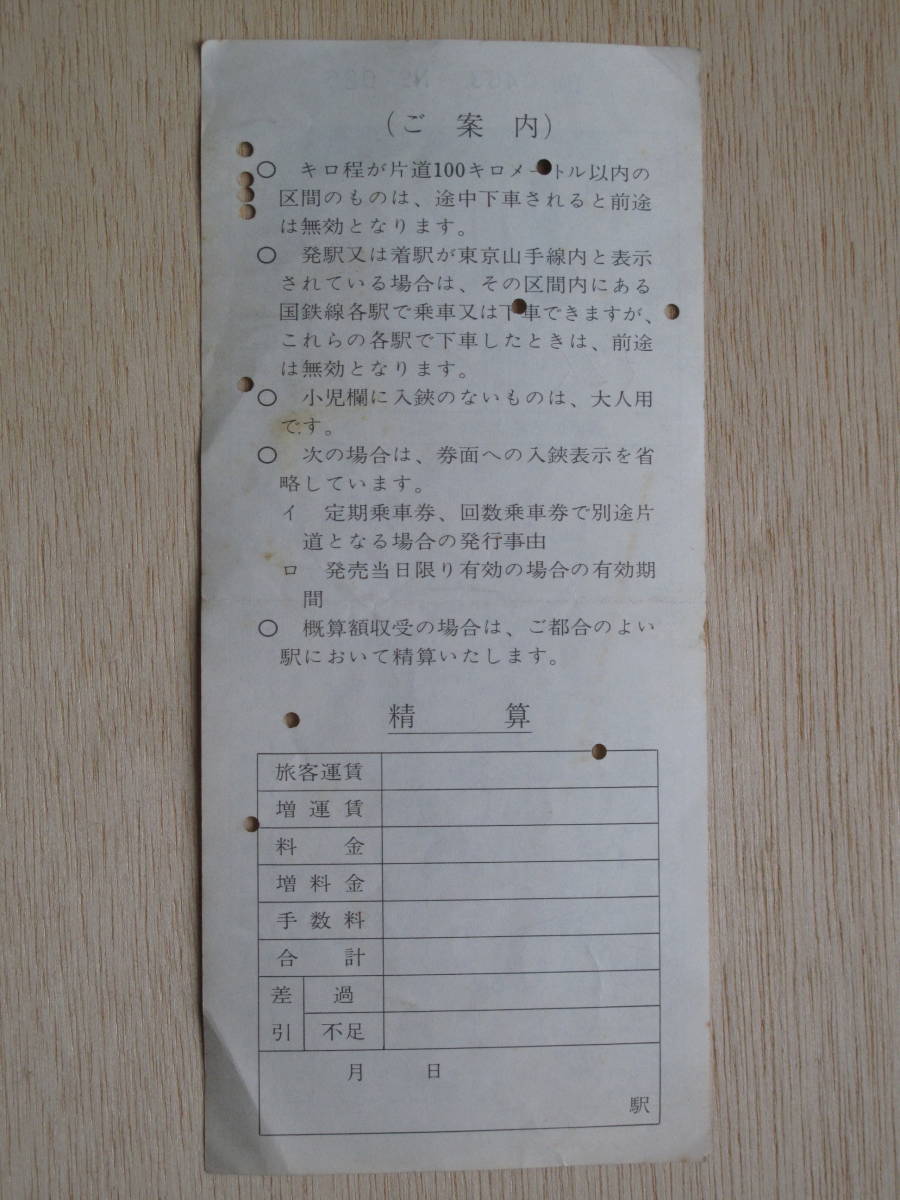 (ご案内)
○ キロ程が片道100キロメートル以内の
区間のものは、途中下車されると前途
は無効となります。
○ 発駅又は着駅が東京山手線内と表示
されている場合は、その区間内にある
国鉄線各駅で乗車又は下車できますが、
これらの各駅で下車したときは、前途
は無効となります。
○ 小児欄に入鋏のないものは、大人用
です。
○ 次の場合は、券面への入鋏表示を省
略しています。
イ 定期乗車券、回数乗車券で別途片
道となる場合の発行事由
ロ 発売当日限り有効の場合の有効期
間
○ 概算額収受の場合は、ご都合のよい
駅において精算いたします。
精算
旅客運賃
増運賃
料金
増料金
手数料
合計
差引 過
不足
月 日
駅